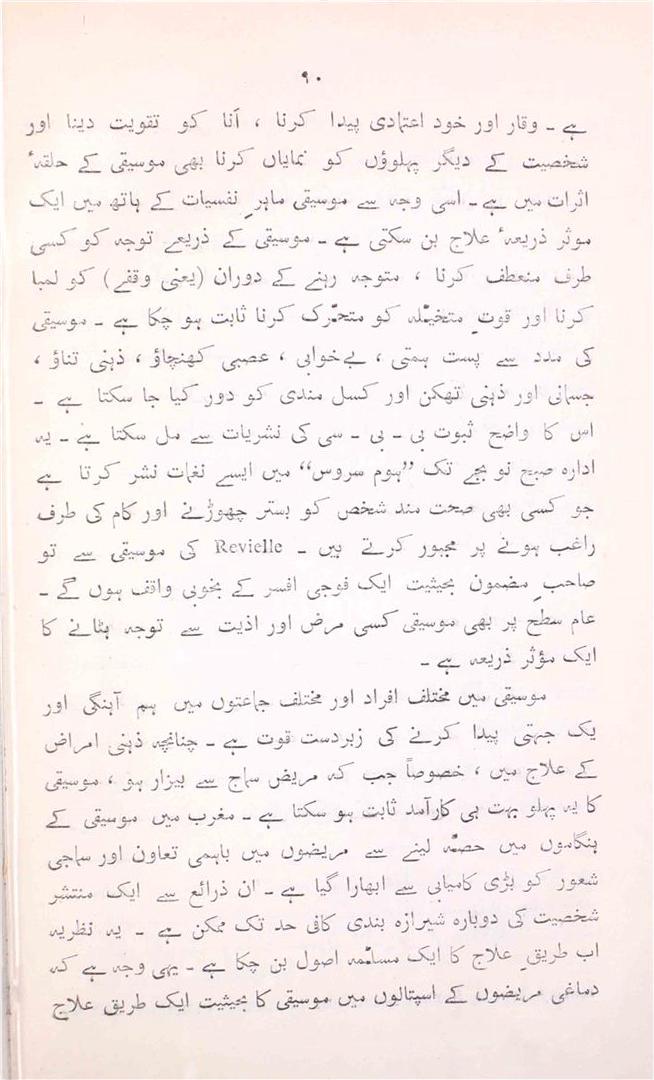 ۹۰
ہے ۔ وقار اور خود اعتمادی پیدا کرنا ، اَنا کو تقویت دینا اور
شخصیت کے دیگر پہلوؤں کو نمایاں کرنا بھی موسیقی کے حلقۂ
اثرات میں ہے ۔ اسی وجہ سے موسیقی ماہرِ نفسیات کے ہاتھ میں ایک
موثر ذریعۂ علاج بن سکتی ہے ۔ موسیقی کے ذریعے توجہ کو کسی
طرف منعطف کرنا ، متوجہ رہنے کے دوران (یعنی وقفے) کو لمبا
کرنا اور قوتِ متخیّلہ کو متحرّک کرنا ثابت ہو چکا ہے ۔ موسیقی
کی مدد سے پست ہمتی ، بےخوابی ، عصبی کھنچاؤ ، ذہنی تناؤ ،
جسمانی اور ذہنی تھکن اور کسل مندی کو دور کیا جا سکتا ہے ۔
اس کا واضح ثبوت بی ۔ بی ۔ سی کی نشریات سے مل سکتا ہے ۔ یہ
ادارہ صبح نو بجے تک ”ہوم سروس“ میں ایسے نغمات نشر کرتا ہے
جو کسی بھی صحت مند شخص کو بستر چھوڑنے اور کام کی طرف
راغب ہونے پر مجبور کرتے ہیں ۔ Revielle کی موسیقی سے تو
صاحبِ مضمون بحیثیت ایک فوجی افسر کے بخوبی واقف ہوں گے ۔
عام سطح پر بھی موسیقی کسی مرض اور اذیت سے توجہ ہٹانے کا
ایک مؤثر ذریعہ ہے ۔
موسیقی میں مختلف افراد اور مختلف جماعتوں میں ہم آہنگی اور
یک جہتی پیدا کرنے کی زبردست قوت ہے ۔ چنانچہ ذہنی امراض
کے علاج میں ، خصوصاً جب کہ مریض سماج سے بیزار ہو ، موسیقی
کا یہ پہلو بہت ہی کارآمد ثابت ہو سکتا ہے ۔ مغرب میں موسیقی کے
ہنگاموں میں حصّہ لینے سے مریضوں میں باہمی تعاون اور سماجی
شعور کو بڑی کامیابی سے ابھارا گیا ہے ۔ ان ذرائع سے ایک منتشر
شخصیت کی دوبارہ شیرازہ بندی کافی حد تک ممکن ہے ۔ یہ نظریہ
اب طریقِ علاج کا ایک مسلّمہ اصول بن چکا ہے ۔ یہی وجہ ہے کہ
دماغی مریضوں کے اسپتالوں میں موسیقی کا بحیثیت ایک طریق علاج